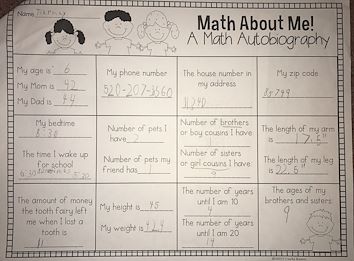 Name
Math About Me!
A Math Autobiography
My age is 6
My Mom is 42
My Dad is 44
My phone number
520-207-3560
The house number in
my address
My zip code
85799
My bedtime
8:30
The time I wake up
for school
Number of pets I
have 2
Number of pets my
friend has 1
Number of brothers
or boy cousins I have
Number of sisters
or girl cousins I have
9
The length of my arm
is 17.5"
The length of my leg
is 22.5"
The amount of money
the tooth fairy left
me when I lost a
tooth is
My height is 45
My weight is 42.4
The number of years
until I am 10
The number of years
until I am 20
14
The ages of my
brothers and sisters:
9